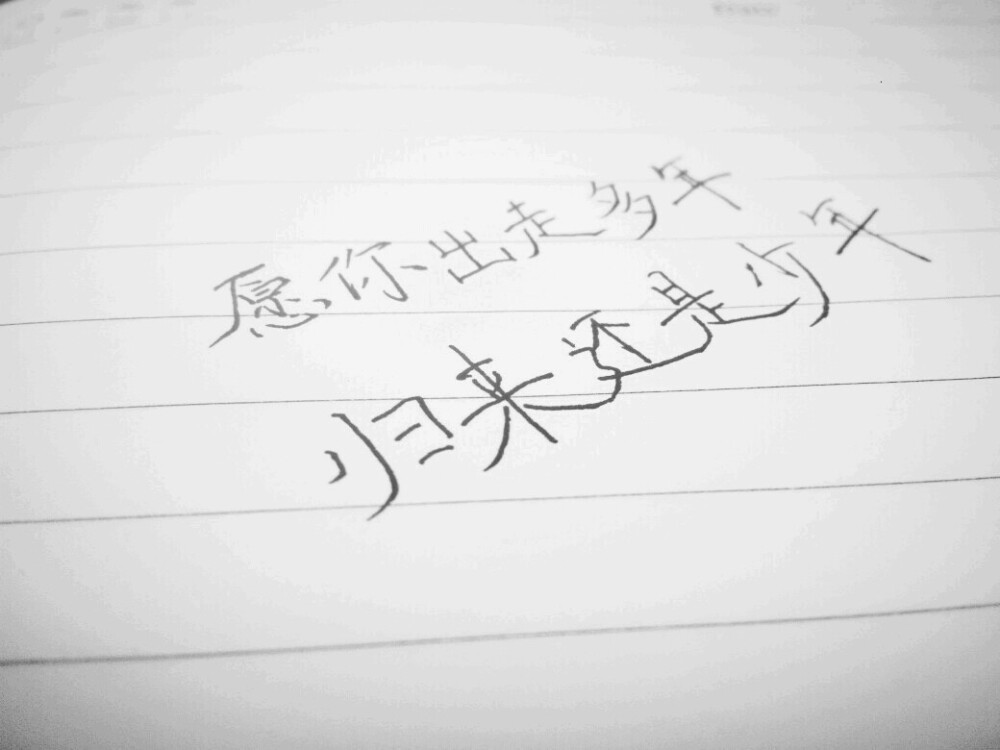 愿你出走多年
归来还是少年